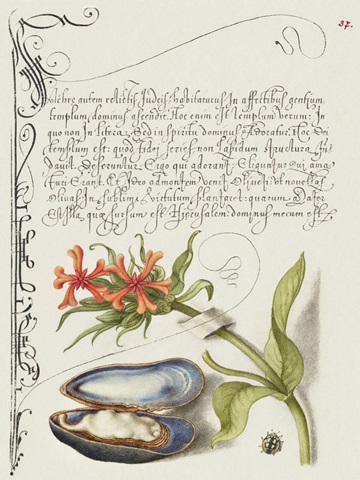 37.
autem relictis Judeis habitaturus In affectibus gentium
templum dominus ascendit. Hoc enim est templum verum: In
quo non In litera, Sed in spiritu dominus Adoratur. Hoc Dei
templum est: quod fidei series non Lapidum structura fun
davit. Deseruntur Ergo qui adorant: Eliguntur Qui ama
turi Erant. Et Ideo ad montem venit Oliveti: ut novellas
Olivas In sublimi Virtutum plantaret: quarum Mater
Est Illa quæ sursum est Hierusalem: dominus mecum est.